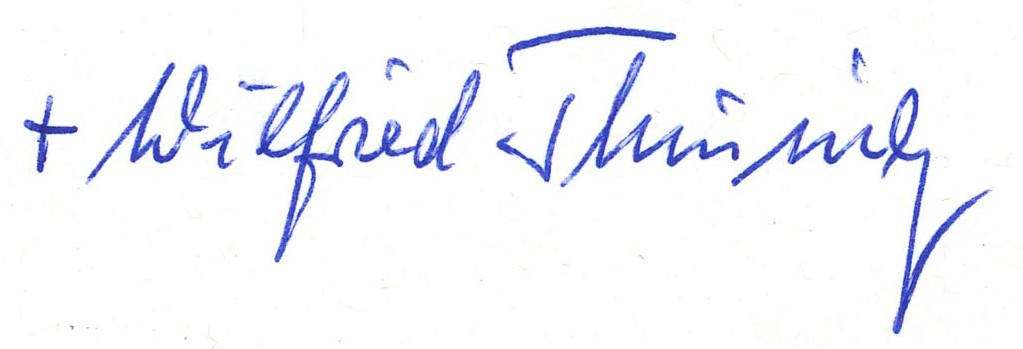 + Wilfried Theising